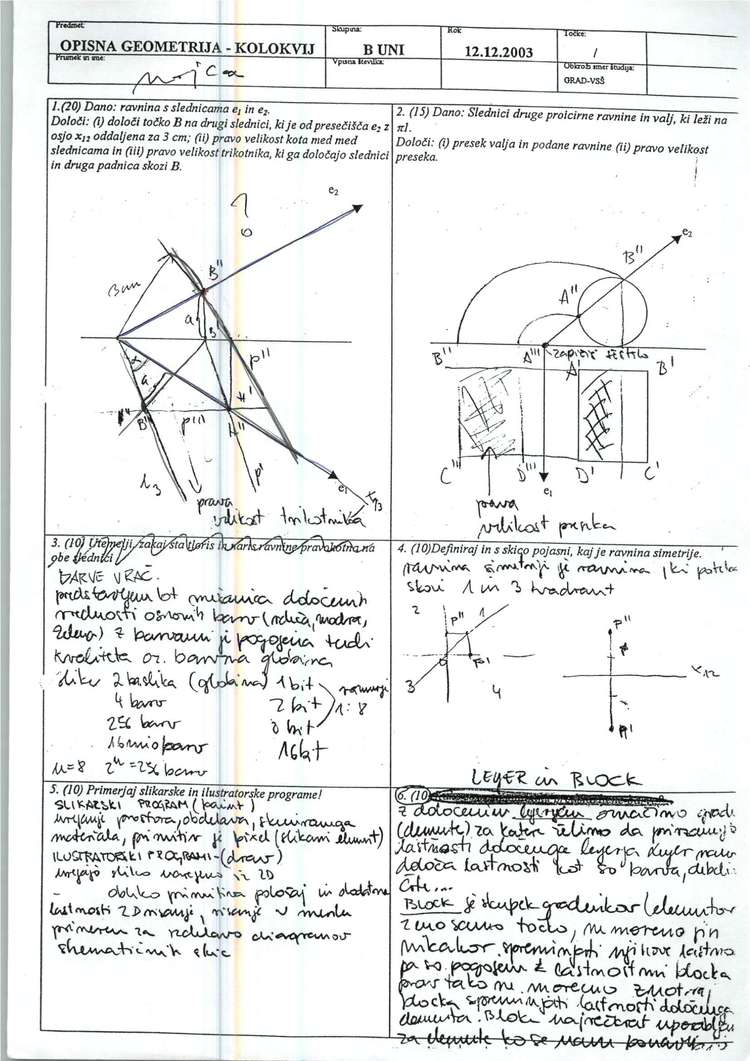 Predmet:
OPISNA GEOMETRIJA - KOLOKVIJ
Skupina:
B UNI
Rok:
12.12.2003
Točke:
/
Priimek in ime:
Mojca
Vpisna številka:
Obkroži smer študija:
GRAD-VSŠ
1.(20) Dano: ravnina s slednicama e1 in e2.
Določi: (i) določi točko B na drugi slednici, ki je od presečišča e2 z
osjo x12 oddaljena za 3 cm; (ii) pravo velikost kota med med
slednicama in (iii) pravo velikost trikotnika, ki ga določajo slednici
in druga padnica skozi B.
e2
3cm
B"
a
B'
p"
α
a
B'''
p'''
A'
A"
p'
l3
e1
prava
velikost trikotnika
2. (15) Dano: Slednici druge proicirne ravnine in valj, ki leži na
π1.
Določi: (i) presek valja in podane ravnine (ii) pravo velikost
preseka.
e2
B"
A"
B'''
A'''
A'
B'
C'''
D'''
D'
C'
e1
prava
velikost preseka
3. (10) Utemelji, zakaj sta tloris in naris ravnine pravokotna na
obe slednici
BARVE VRAČ.
predstavljem kot mešanica določenih
vrednosti osnovnih barv (rdeča, modra,
zelena) Z barvami je pogojena tudi
kvaliteta oz. barvna globina
slike 2 barvi (globina) 1 bit
4 barv 2 bit 1:8
256 barv 8 bit
16 mio barv 16 bit
n=8 2ⁿ = 256 barv
4. (10)Definiraj in s skico pojasni, kaj je ravnina simetrije.
ravnina simetriji je ravnina, ki poteka
skozi 1 in 3 kvadrant
2 p" 1
p'
3 4
p"
x12
p'
5. (10) Primerjaj slikarske in ilustratorske programe!
SLIKARSKI PROGRAM (paint)
urejanje prostora, obdelava, skeniranega
materiala, primitiv je pixel (slikovni element)
ILUSTRATORSKI PROGRAMI-(draw)
urejajo sliko narejeno iz 2D
- obliko primitiva položaj in dodatne
lastnosti 2D risanje, risanje v merilu
primeren za izdelavo diagramov
shematičnih skic
LEYER in BLOCK
6. (10)
Z določenim leyerjem označimo grad.
(elemente) za katere želimo da prirejamo
lastnosti določenega leyerja. Leyer nam
določa lastnosti kot so barva, debeli.
črte...
BLOCK je skupek gradnikov (elementov
z eno samo točko, ne moremo jih
nikakor spreminjati njihove lastnos
pa so pogojem z lastnostmi blocka
prav tako ne moremo znotraj
blocka spreminjati lastnosti določenega
elementa. Bloke največkrat uporablja
za elemente ko se nam ponavljajo